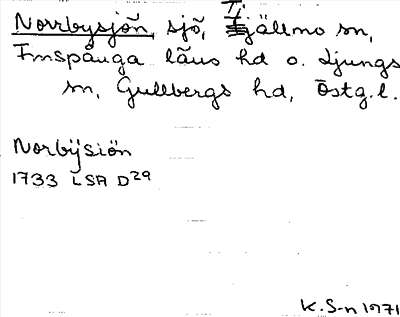 Norrbysjön, sjö, Tjällmo sn,
Finspånga läns hd o. Ljungs
sn, Gullbergs hd, Östg.l.
Norbÿsiön
1733 LSA D29
K.S-n 1971